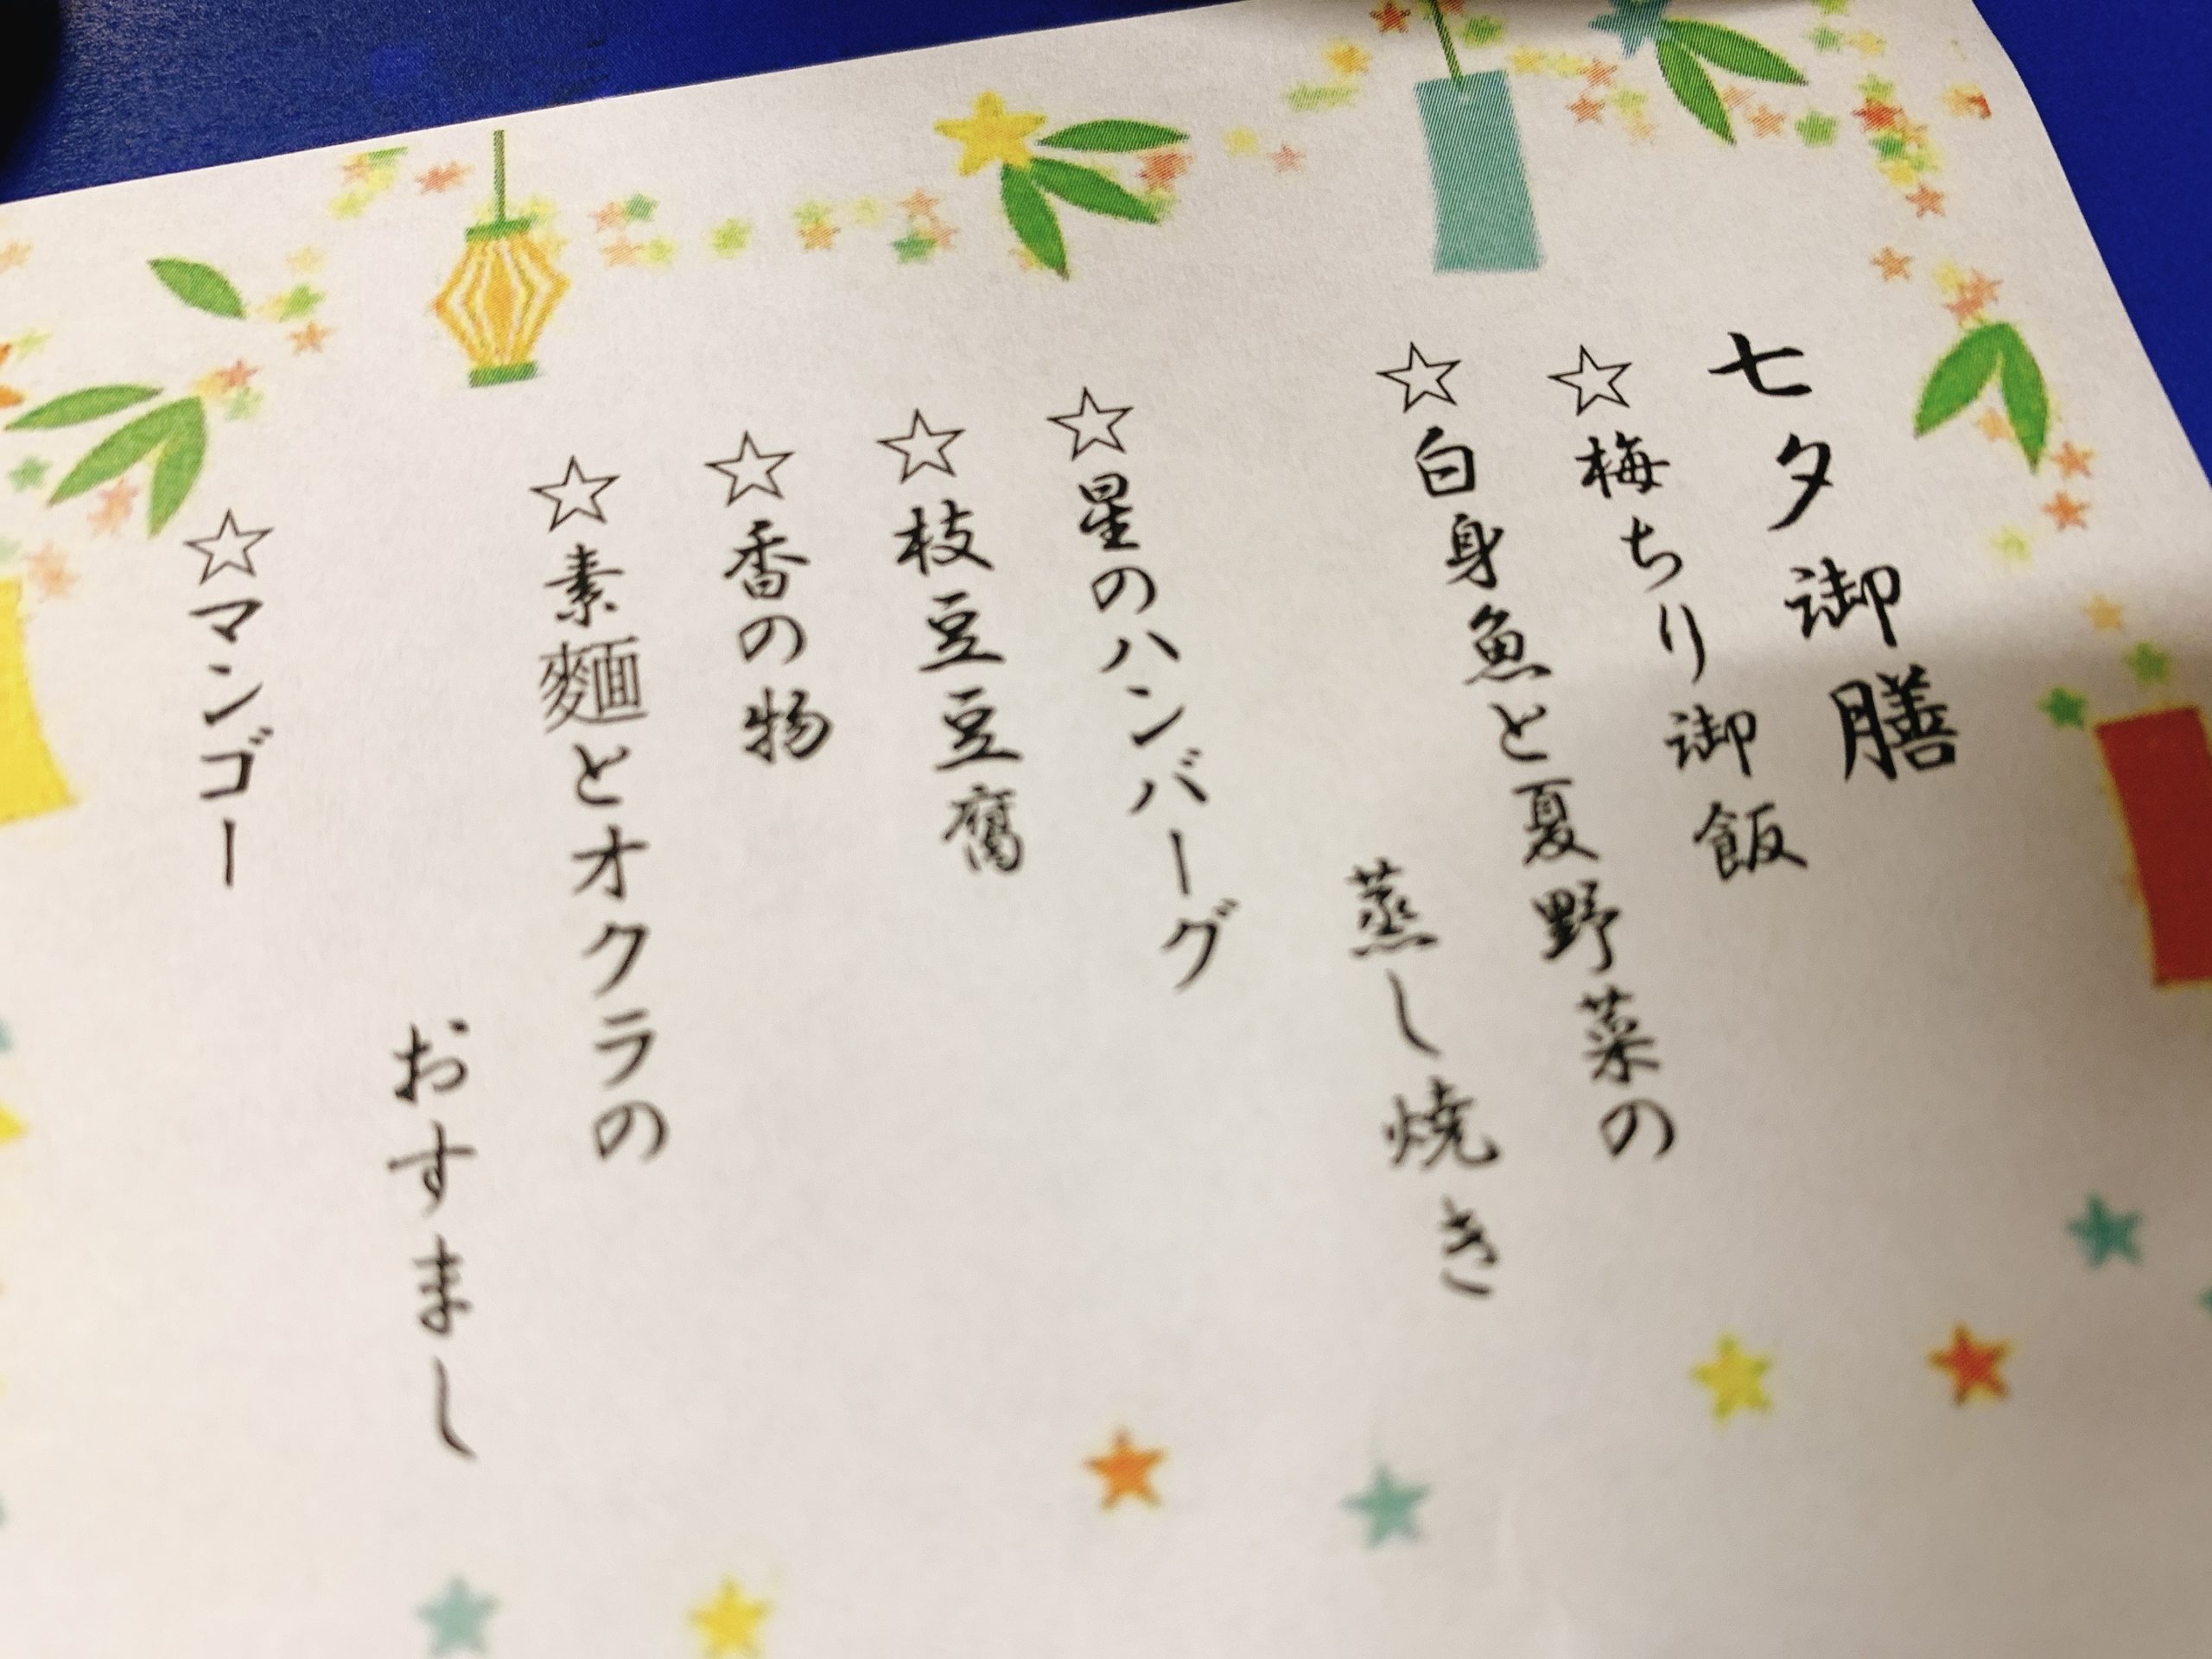 七夕御膳
☆梅ちり御飯
☆白身魚と夏野菜の
蒸し焼き
☆星のハンバーグ
☆枝豆豆腐
☆香の物
☆素麺とオクラの
おすまし
☆マンゴー